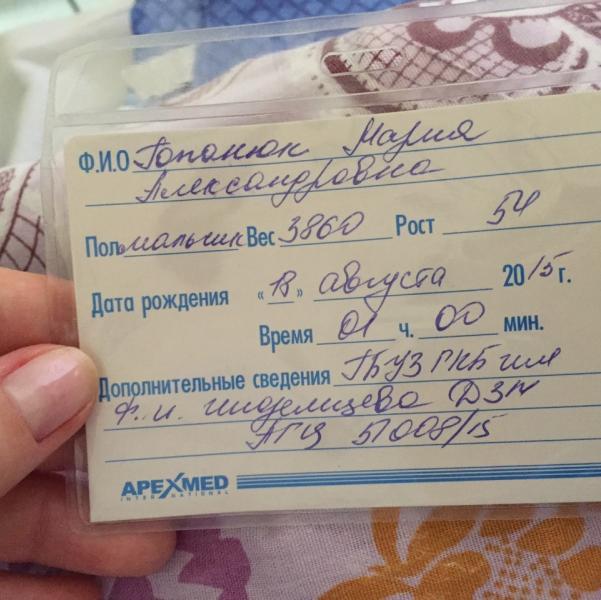 Ф.И.О Топанюк Мария
Александровна
Пол мальчик Вес 3860 Рост 54
Дата рождения «13» августа 2015 г.
Время 01 ч. 00 мин.
Дополнительные сведения ГБУЗ ГКБ им
Ф.И. Иноземцева ДЗМ
51008/15
APEXMED
INTERNATIONAL